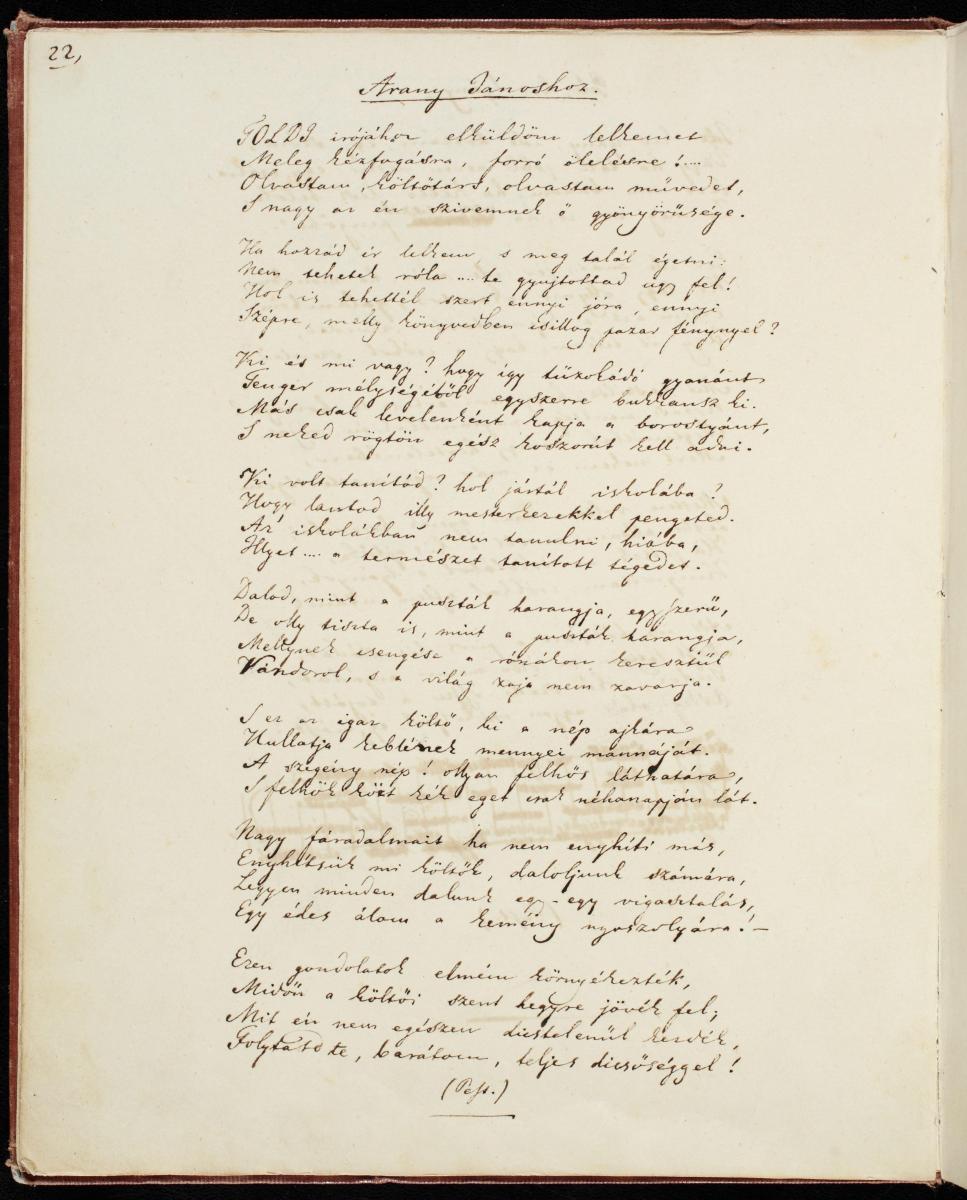 22,
Arany Jánoshoz.
TOLDI irójához elküldöm lelkemet
Meleg kézfogásra, forró ölelésre!....
Olvastam, költőtárs, olvastam művedet,
S nagy az én szivemnek ő gyönyörűsége.
Ha hozzád ér lelkem s meg talál égetni:
Nem tehetek róla .... te gyujtottad ugy fel!
Hol is tehettél szert ennyi jóra, ennyi
Szépre, melly könyvedben csillog pazar fénynyel?
Ki és mi vagy? hogy így tüzokádó gyanánt
Tenger mélységéből egyszerre bukkansz ki.
Más csak levelenként kapja a borostyánt,
S neked rögtön egész koszorút kell adni.
Ki volt tanitód? hol jártál iskolába?
Hogy lantod illy mesterkezekkel pengeted.
Az iskolákban nem tanulni, hiába,
Illyet .... a természet tanított tégedet.
Dalod, mint a puszták harangja, egyszerű,
De olly tiszta is, mint a puszták harangja,
Mellynek csengése a rónákon keresztül
Vándorol, s a világ zaja nem zavarja.
S ez az igaz költő, ki a nép ajkára
Hullatja keblének mennyei mannáját.
A szegény nép! ollyan felhős láthatára,
S felhők közt kék eget csak néhanapján lát.
Nagy fáradalmait ha nem enyhíti más,
Enyhítsük mi költők, daloljunk számára,
Legyen minden dalunk egy-egy vigasztalás,
Egy édes álom a kemény nyoszolyára! –
Ezen gondolatok elmém környékezték,
Midőn a költői szent hegyre jövék fel;
Mit én nem egészen dicstelenül kezdék,
Folytasd te, barátom, teljes dicsőséggel!
(Pest.)